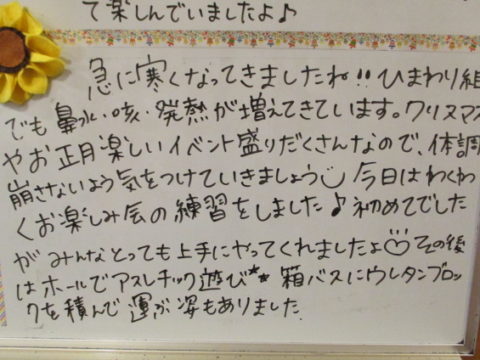 て楽しんでいましたよ♪
急に寒くなってきましたね!!ひまわり組
でも鼻水・咳・発熱が増えてきています。クリスマス
やお正月楽しいイベント盛りだくさんなので、体調
崩さないよう気をつけていきましょう 今日はわくわ
くお楽しみ会の練習をしました♪初めてでした
がみんなとっても上手にやってくれましたよ♡その後
はホールでアスレチック遊び** 箱バスにウレタンブロッ
クを積んで運ぶ姿もありました.